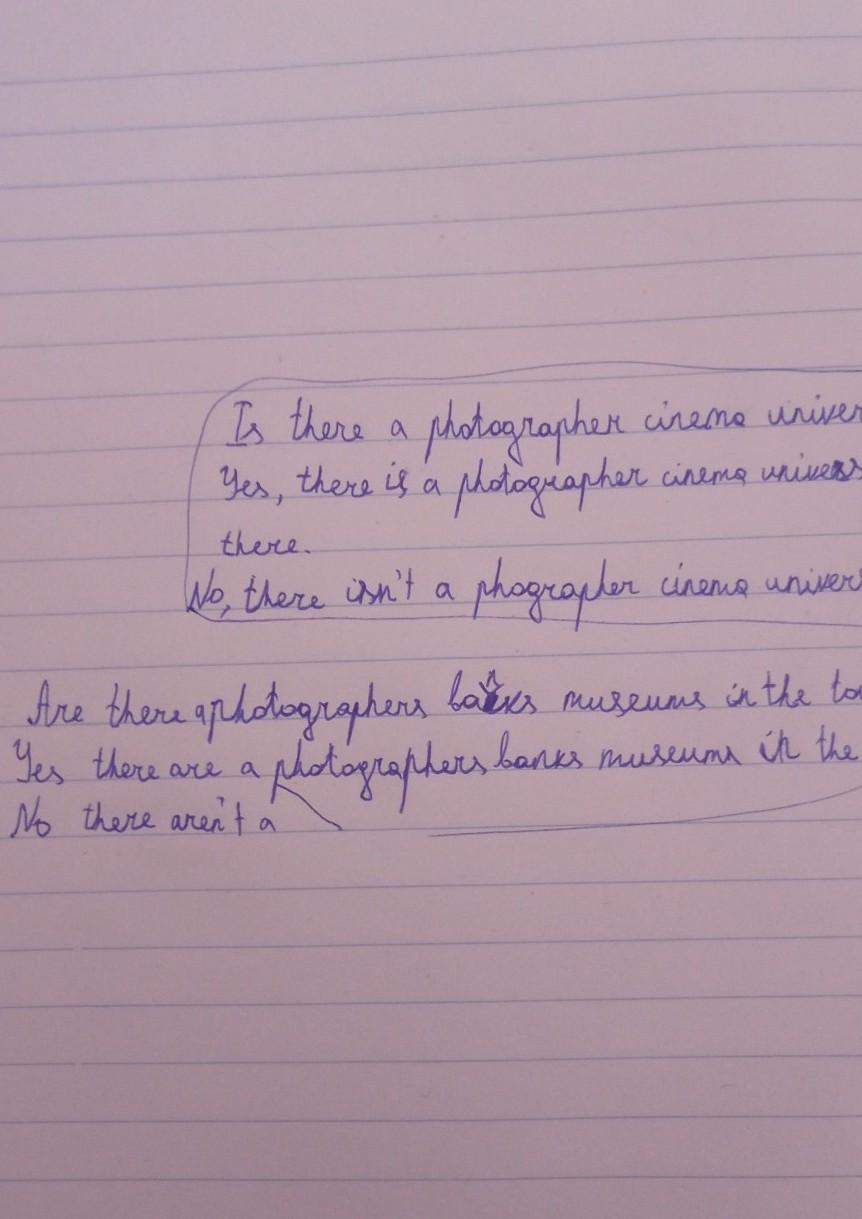 Is there a photographer cinema univer
Yes, there is a photographer cinema univers
there.
No, there isn't a phographer cinema univer
Are there a photographers banks museums in the to
Yes there are a photographers banks museums in the
No there aren't a